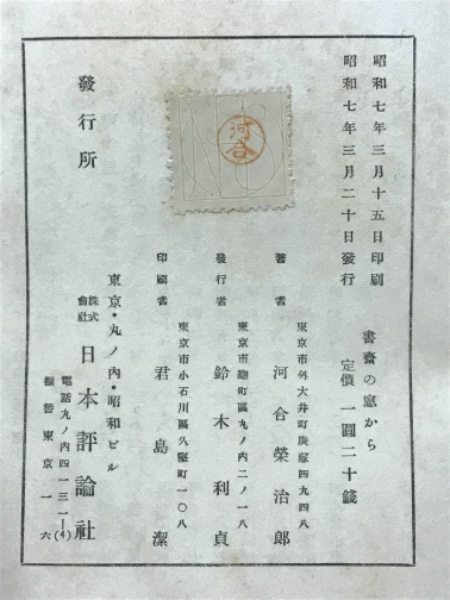 昭和七年三月十五日印刷
昭和七年三月二十日發行
書齋の窓から
定價 一圓二十錢
河合
東京市外大井町庚塚四九四八
著者 河合榮治郎
東京市麴町區丸ノ內二ノ一八
發行者 鈴木利貞
東京市小石川區久堅町一〇八
印刷者 君島潔
發行所
東京・丸ノ內・昭和ビル
株式會社 日本評論社
電話丸ノ內四一三一―(4)
振替東京一六